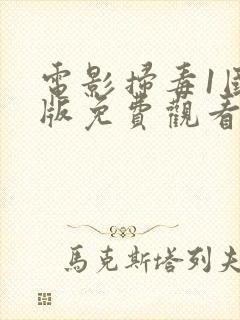 電影掃毒1
版免費觀看
馬克斯塔列夫